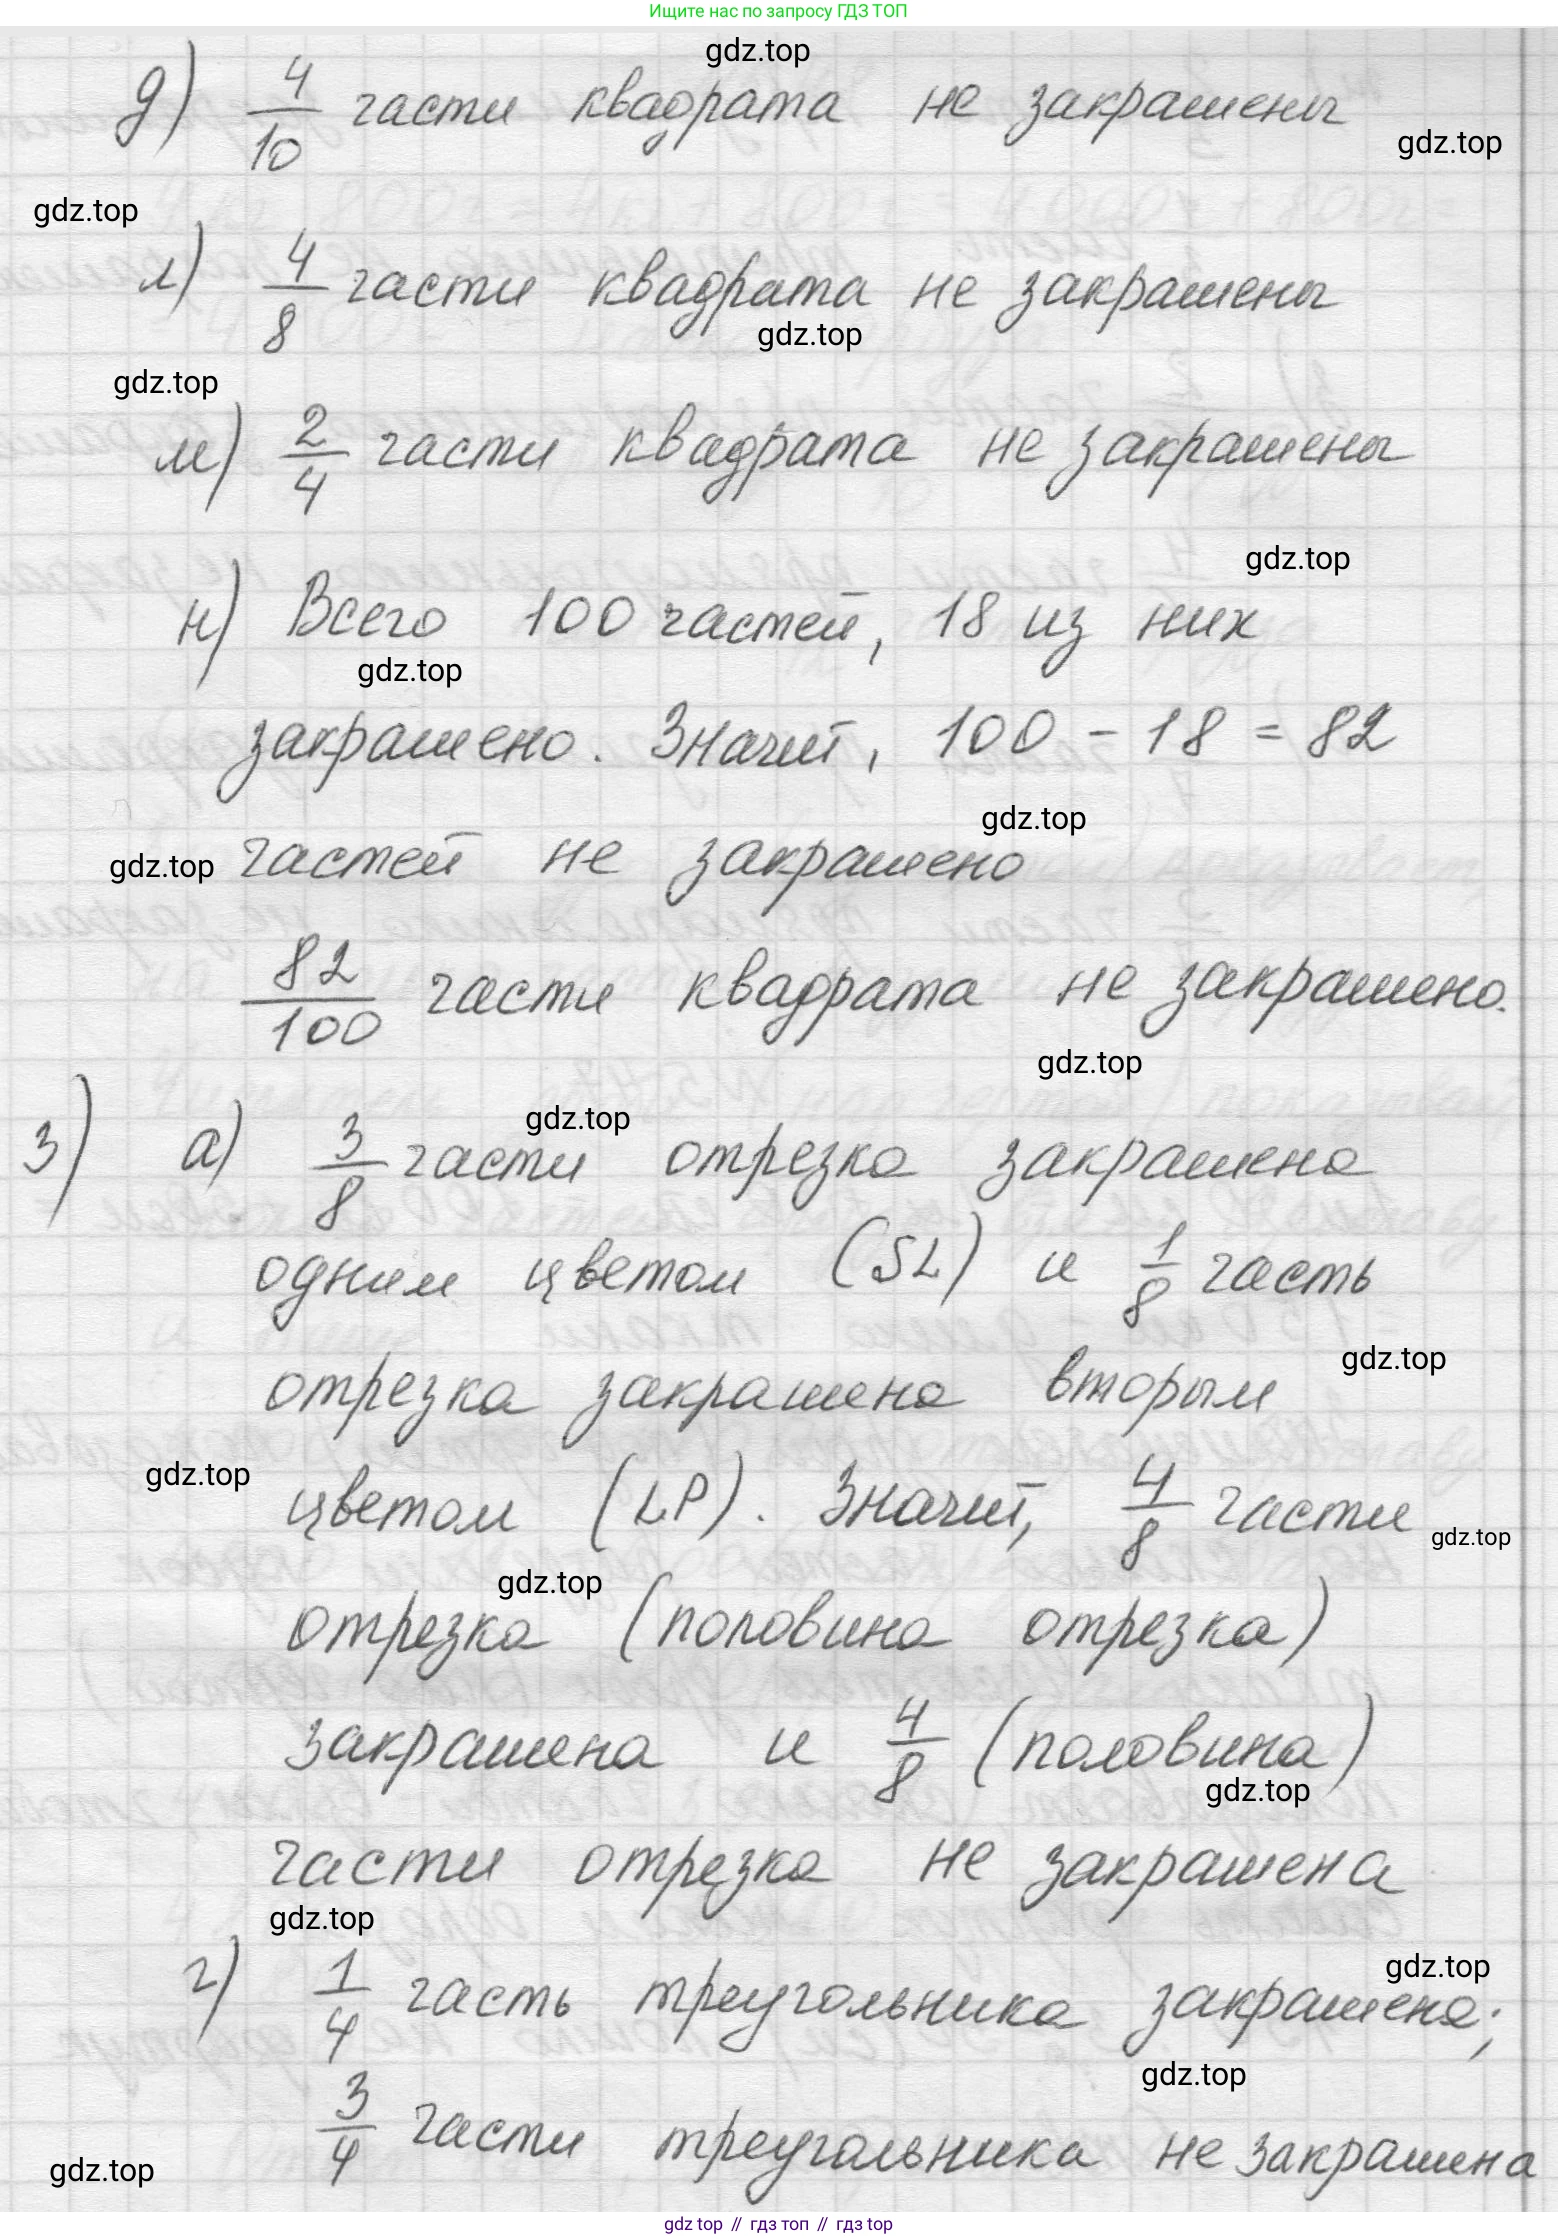 Ищите нас по запросу ГДЗ ТОП
gdz.top
д) 4/10 части квадрата не закрашены
gdz.top
gdz.top
л) 4/8 части квадрата не закрашены
gdz.top
gdz.top
м) 2/4 части квадрата не закрашены
gdz.top
н) Всего 100 частей, 18 из них
gdz.top
закрашено. Значит, 100 - 18 = 82
gdz.top
gdz.top
частей не закрашено
82/100 части квадрата не закрашено.
gdz.top
gdz.top
3) а) 3/8 части отрезка закрашена
одним цветом (SL) и 1/8 часть
gdz.top
отрезка закрашена вторым
gdz.top
цветом (LP). Значит, 4/8 части
gdz.top
gdz.top
отрезка (половина отрезка)
закрашена и 4/8 (половина)
gdz.top
части отрезка не закрашена
gdz.top
gdz.top
г) 1/4 часть треугольника закрашена;
gdz.top
3/4 части треугольника не закрашена
gdz.top
gdz top // гдз топ // гдз top